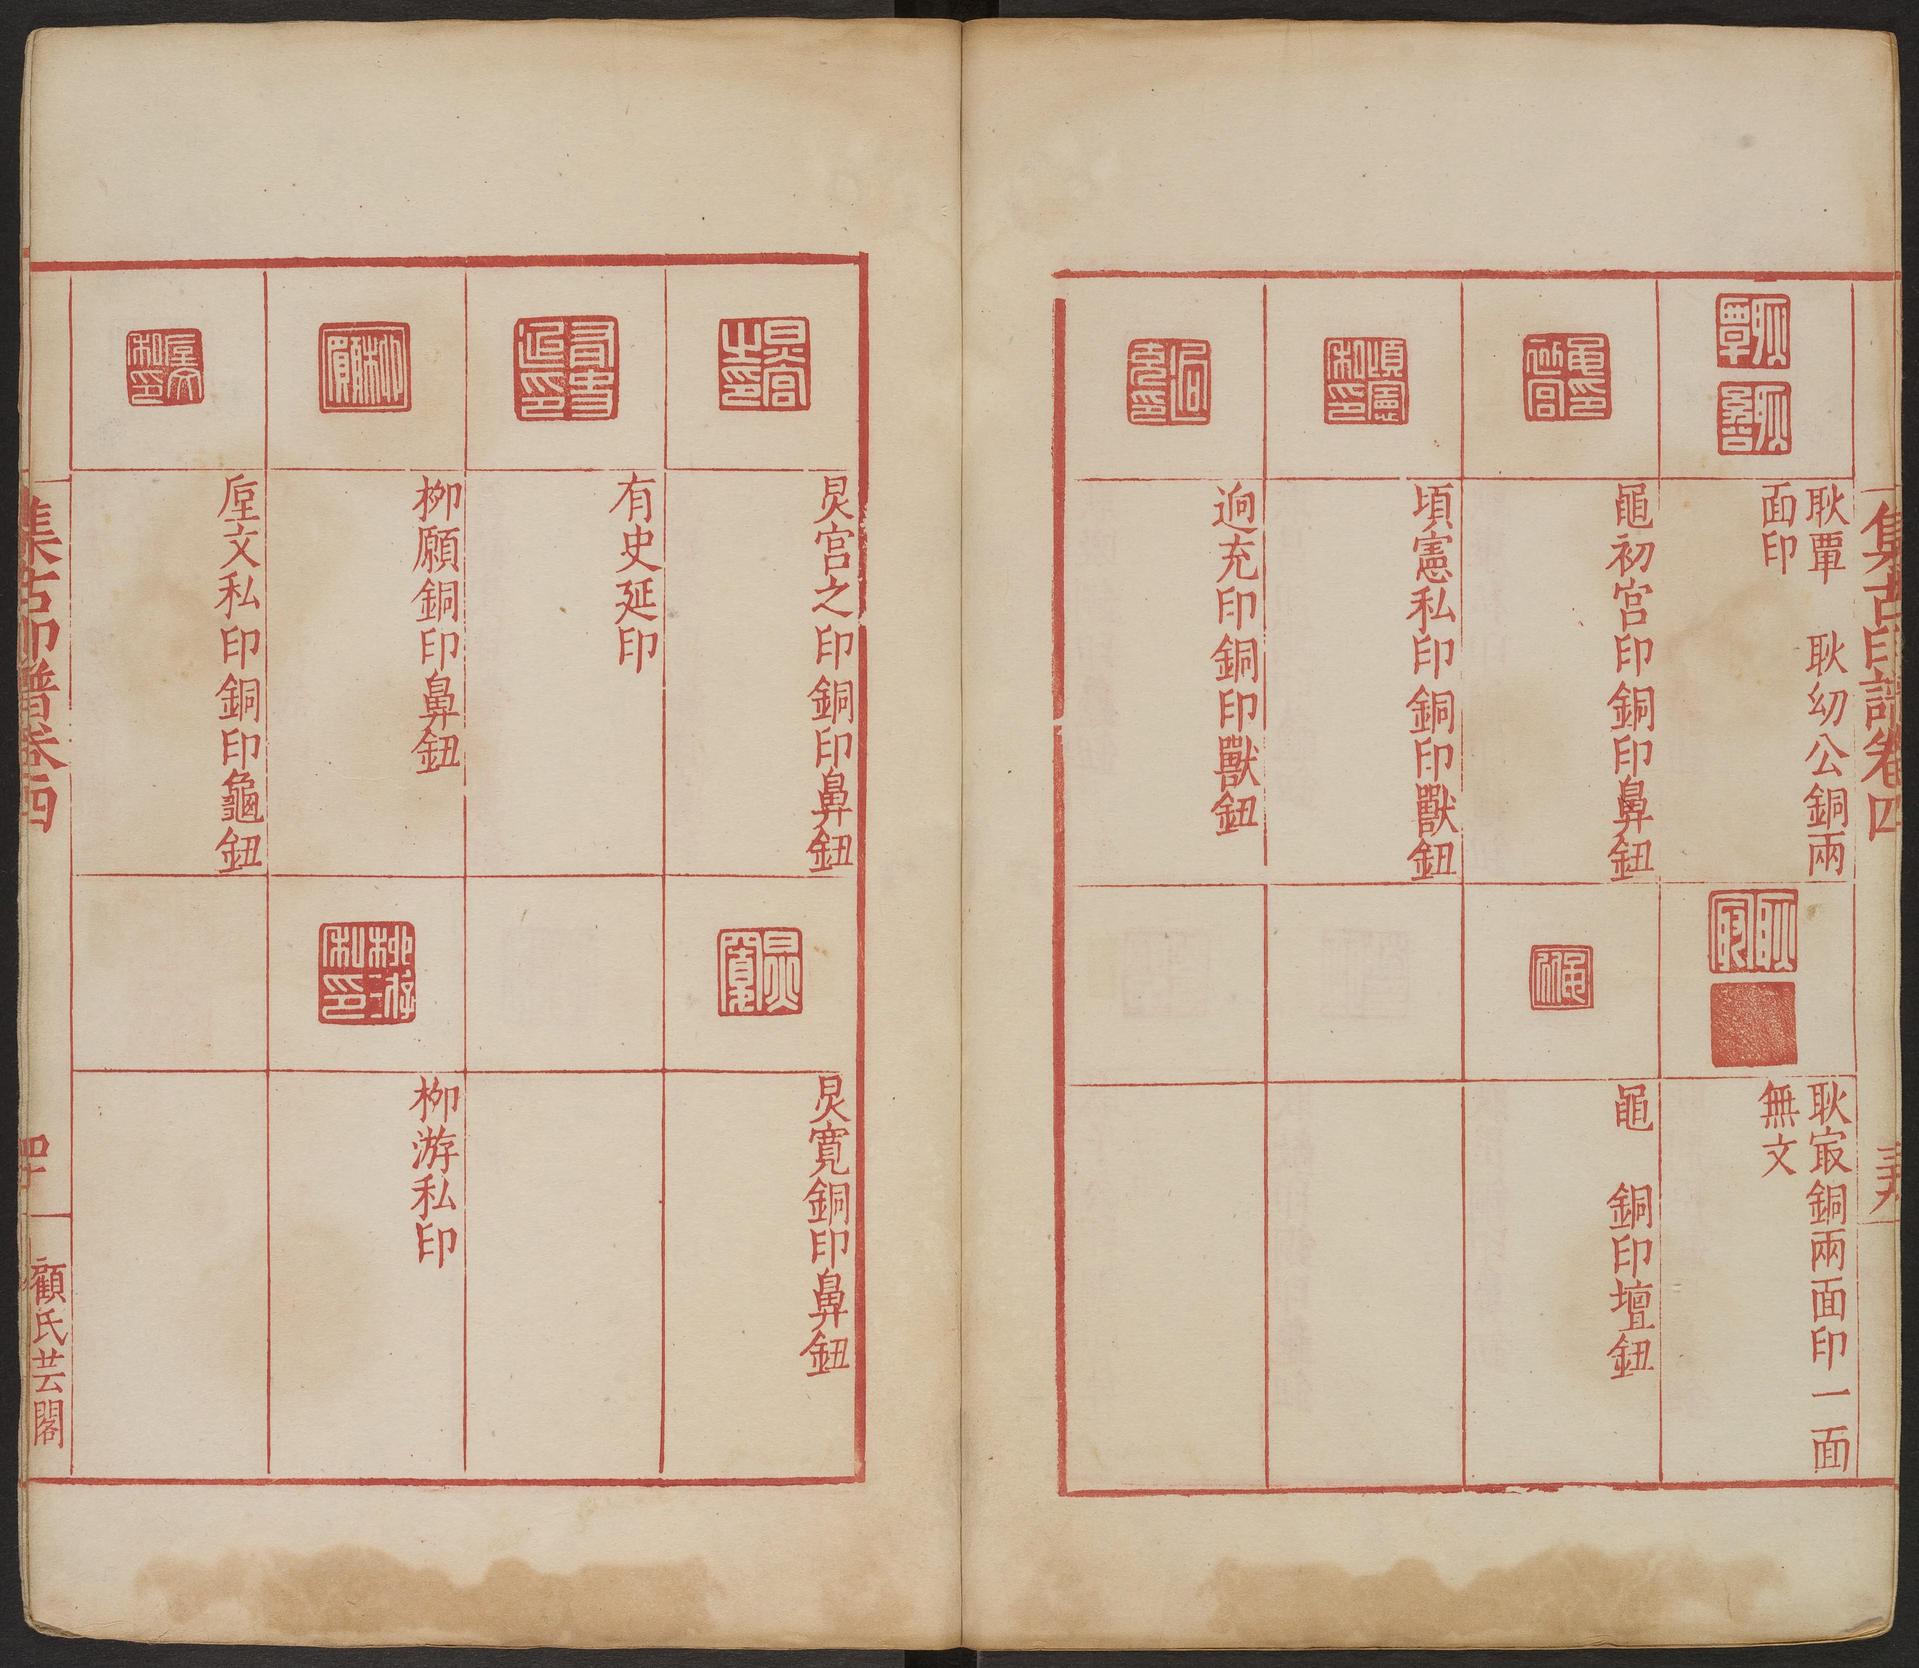 集古印譜卷四
耿覃　耿幼公銅兩
面印
耿㝡銅兩面印一面
無文
黽初宮印銅印鼻鈕
黽　銅印壇鈕
頃憲私印銅印獸鈕
逈充印銅印獸鈕
炅宮之印銅印鼻鈕
炅寛銅印鼻鈕
有史延印
柳願銅印鼻鈕
柳游私印
垕文私印銅印龜鈕
集古印譜卷四
四十
顧氏芸閣